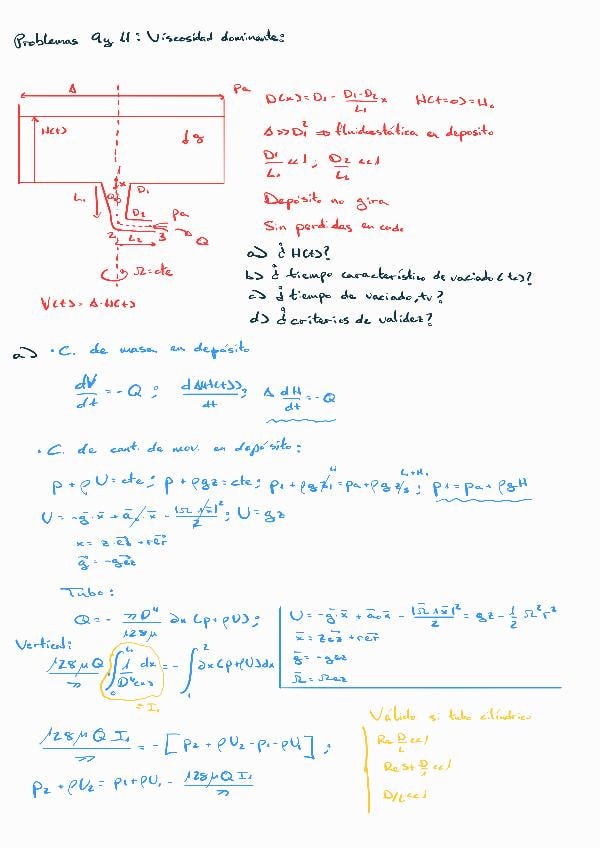 Problemas 9 y 11: Viscosidad dominante:
Δ
Pa
H(t)
↓g
x
L1
D1
D2
Pa
2
L2
3
Q
Ω=cte
V(t)= Δ·H(t)
D(x)= D1 - (D1-D2)/L1 x   H(t=0)=H0
Δ>>D1² ⇒ fluidoestática en deposito
D1/L1 <<1 ; D2/L2 <<1
Depósito no gira
Sin perdidas en codo
a) ¿H(t)?
b) ¿tiempo característico de vaciado (tc)?
c) ¿tiempo de vaciado, tv?
d) ¿criterios de validez?
a) · C. de masa en depósito
dV/dt = -Q ; d(ΔH(t))/dt ; Δ dH/dt = -Q
· C. de cant. de mov. en depósito:
p + ρU = cte ; p + ρgz = cte ; p1 + ρgz1 = pa + ρgzs ; p1 = pa + ρgH
L1+H1
U = -g·x + a0·x - |Ω∧x|²/2 ; U = gz
x = z·ez + rer
g = -gez
Tubo:
Q = - πD⁴/128μ ∂x(p+ρU) ;
U = -g·x + a0x - |Ω∧x|²/2 = gz - 1/2 Ω²r²
x = zez + rer
g = -gez
Ω = Ωez
Vertical:
128μQ/π ∫₀^L1 1/D⁴(x) dx = - ∫₁² ∂x(p+ρU)dx
= I1
128μQ I1/π = -[p2 + ρU2 - p1 - ρU1] ;
p2 + ρU2 = p1 + ρU1 - 128μQ I1/π
Válido si tubo cilíndrico
Re D/L <<1
Re St D/L <<1
D/L <<1